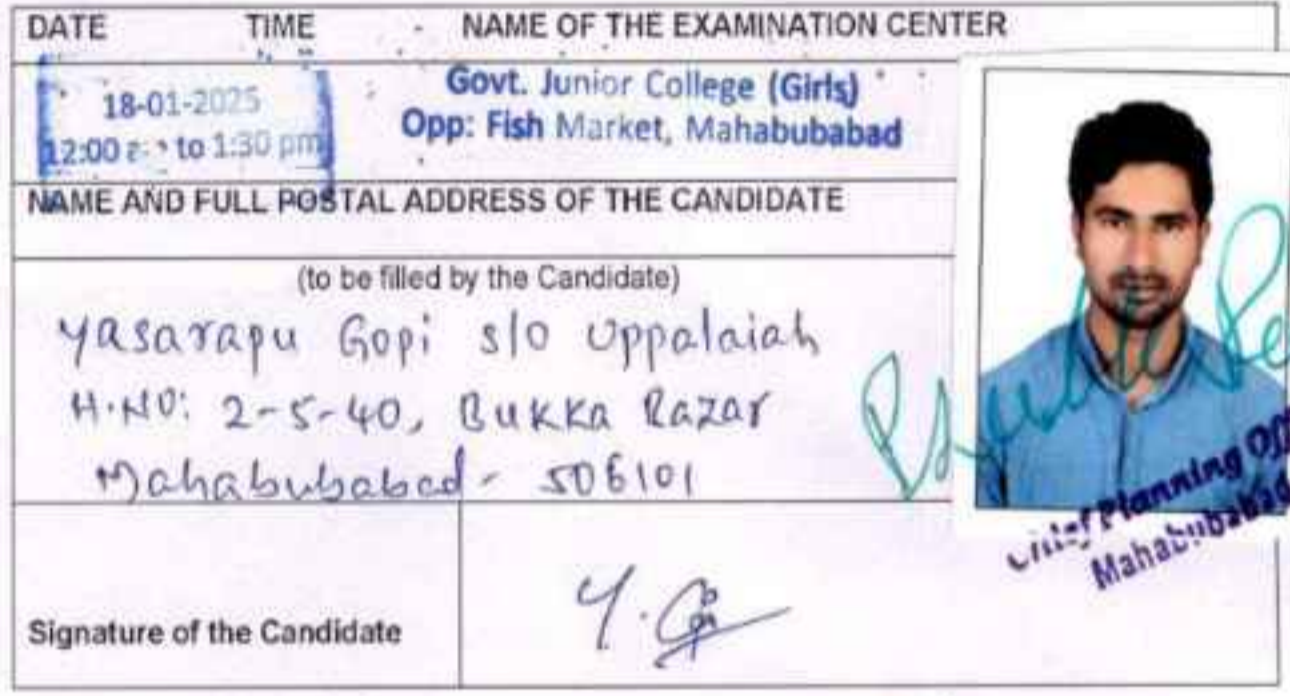 DATE TIME NAME OF THE EXAMINATION CENTER
18-01-2025
12:00 to 1:30 pm
Govt. Junior College (Girls)
Opp: Fish Market, Mahabubabad
NAME AND FULL POSTAL ADDRESS OF THE CANDIDATE
(to be filled by the Candidate)
Yasarapu Gopi s/o Uppalaiah
H.NO: 2-5-40, Bukka Bazar
Mahabubabad - 506101
Chief Planning
Mahabubabad
Signature of the Candidate
Y. Gopi